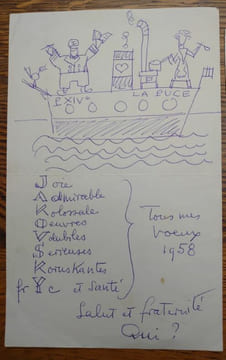 EXIV°
LA PUCE
Joie
Admirable
Kolossale
Oeuvres
Valables
Sérieuses
Koruskantes
fr Yc et Santé
Tous mes
voeux
1958
Salut et fraternité
Qui ?